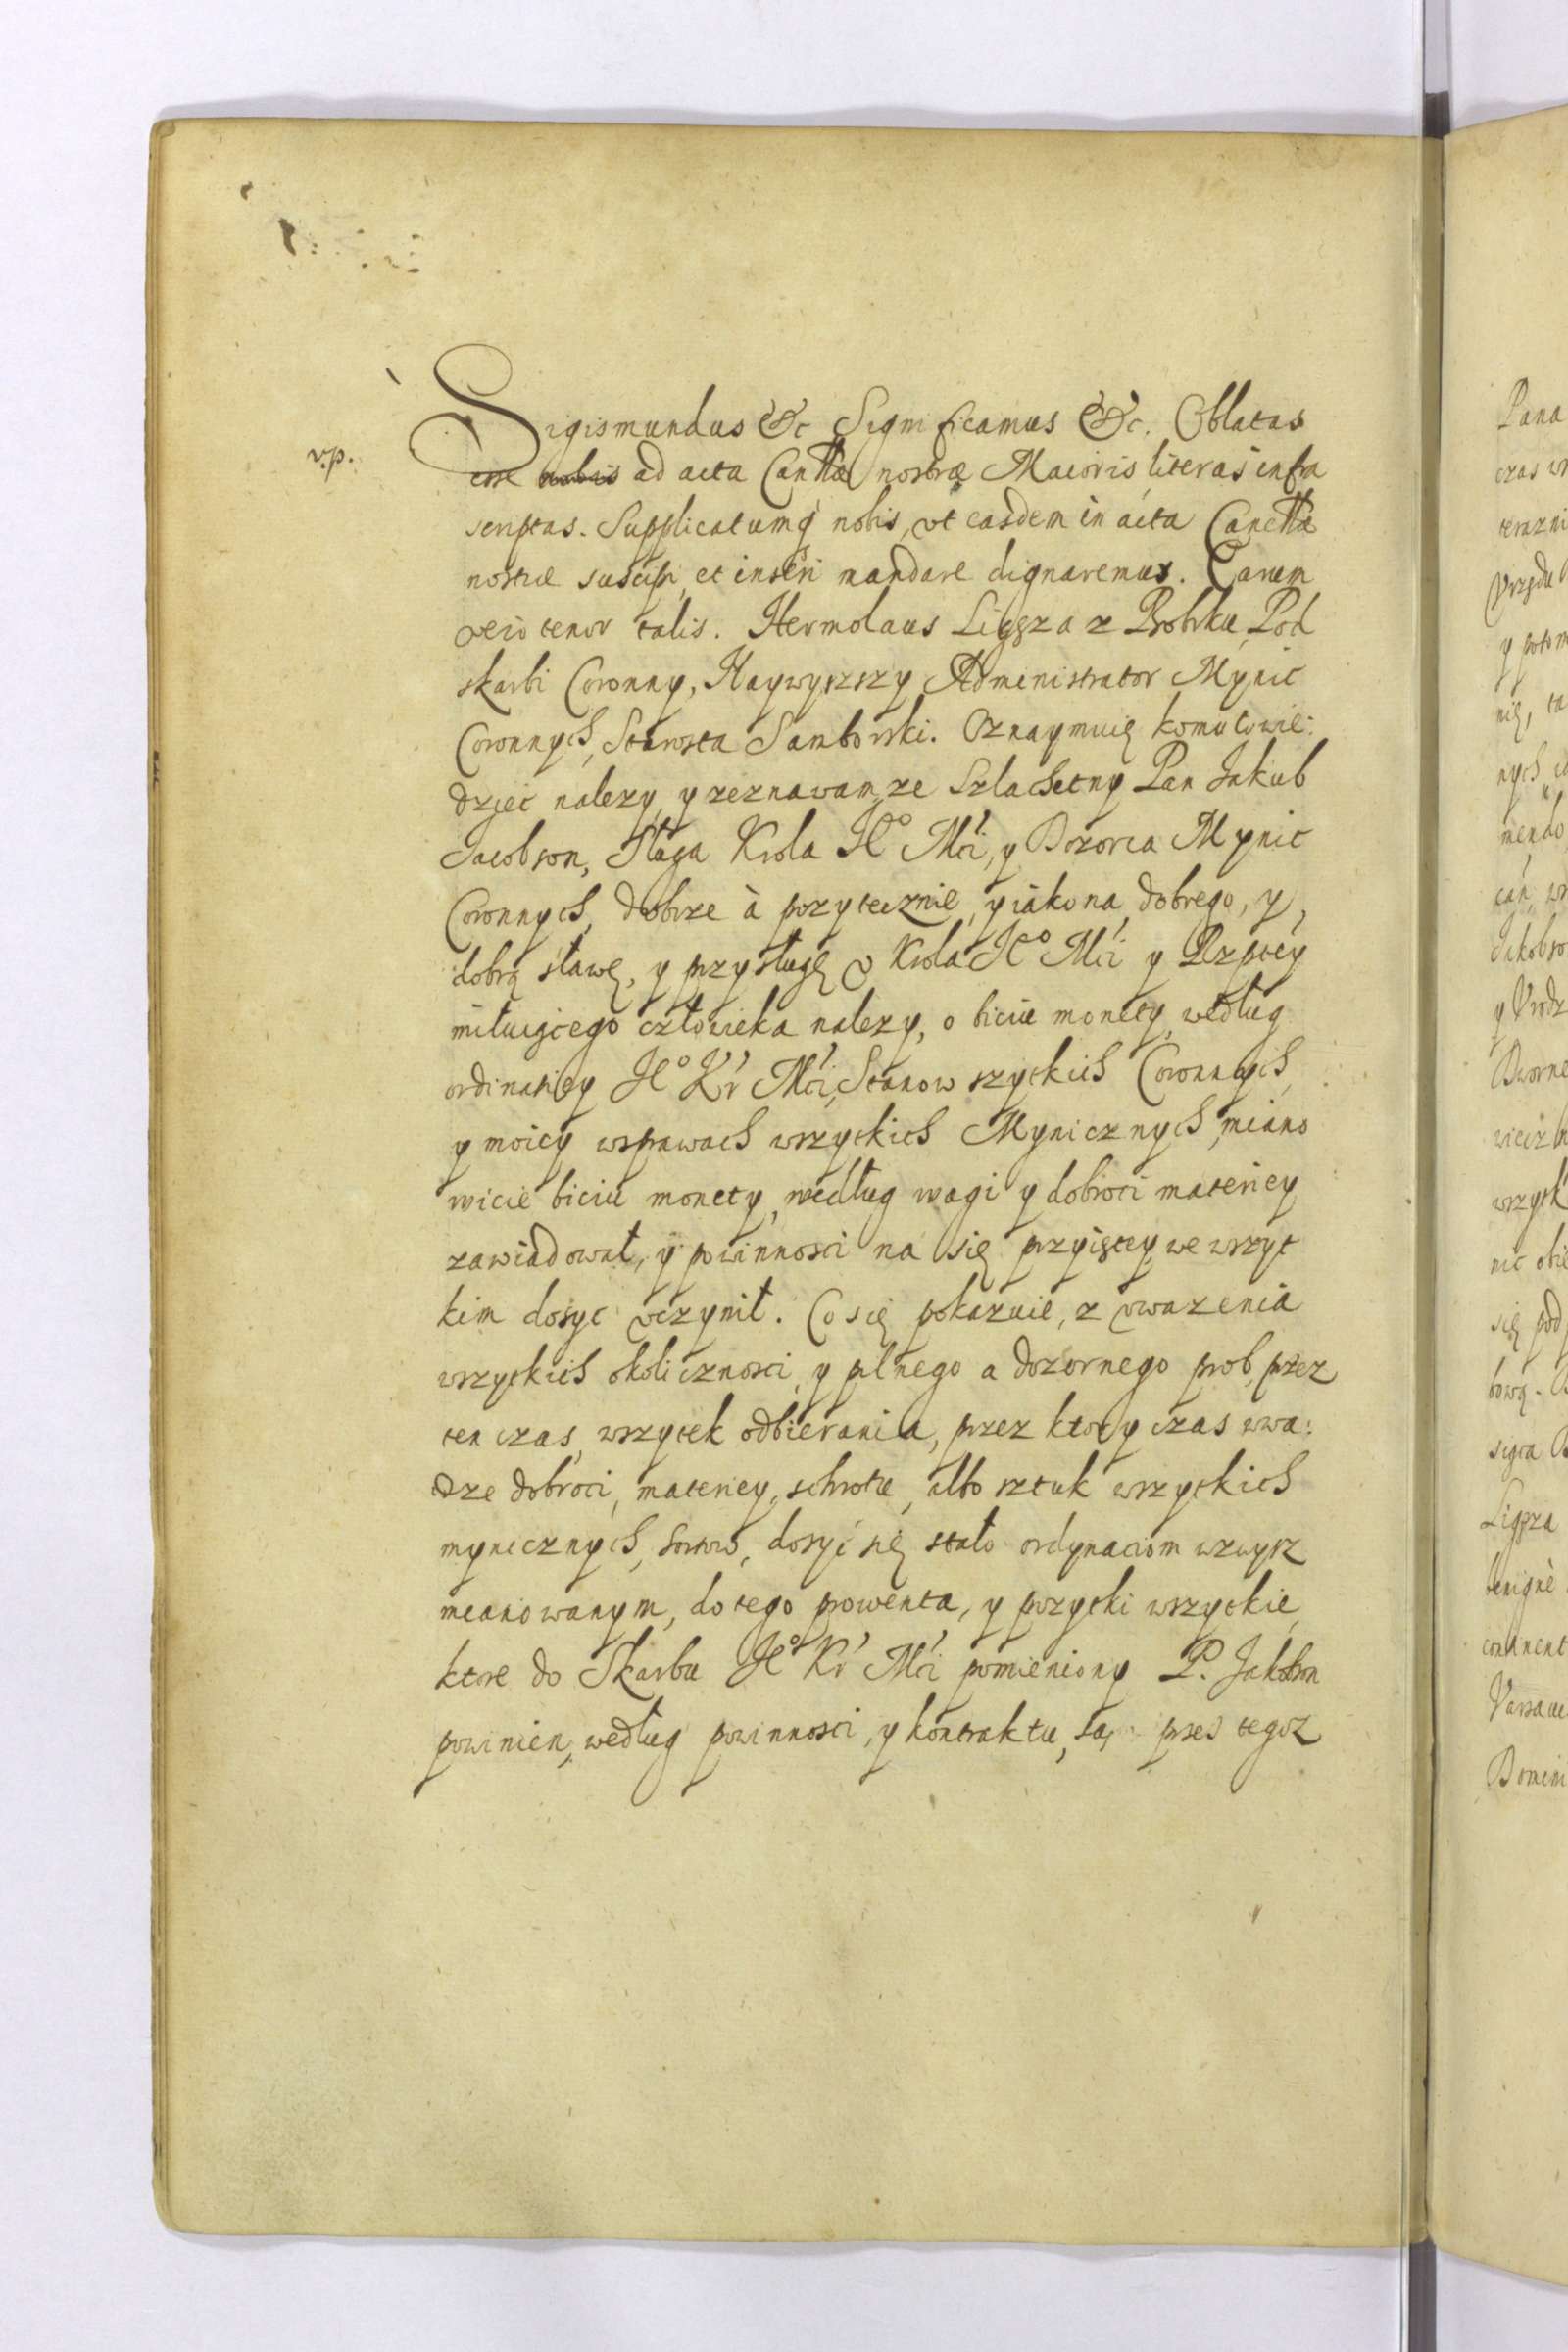 Sigismundus &c Significamus &c. Oblatas
v.p.
esse nobis ad acta Canllæ nostræ Maioris literas infra
scriptas. Supplicatumq nobis, vt easdem in acta Cancllæ
nostræ suscipi et inseri mandare dignaremur. Earum
vero tenor talis. Hermolaus Ligęza z Bobrku Pod
skarbi Coronny, Naywyższy Administrator Mynic
Coronnych, Starosta Samborski. Oznaymuię komu to wie:
dziec nalezy, y zeznawam, ze Szlachetny Pan Jakub
Jacobson, Sługa Krola Jeo Mci, y Dozorca Mynic
Coronnych, dobrze à pozytecznie, y iáko na dobrego, y
dobrą sławę, y przysługę v Krola Jeo Mci y Rzptey
miłuiącego człowieka nalezy, o biciu monety, według
ordinatiey Jeo Kr Mci, Stanow szyckich Coronnych,
y moiey w sprawach wszyckich Mynicznych, miano
wicie biciu monety, według wagi y dobroci materiey
zawiadował, y powinnosci na się przyiętey, we wszyt
kim dosyc vczynił. Co się pokazuie, z vwazenia
wszyckich okolicznosci, y pilnego a dozornego prob, przez
ten czas, wszytek odbierania, przez ktory czas wwa:
dze dobroci, materiey, schrotu, albo sztuk wszyckich
mynicznych, sortow, dosyć się stało ordynaciom wzwysz
mianowanym, do tego prowenta, y pozytki wszyckie,
ktore do Skarbu Jeo Kr Mci pomieniony P. Jakobson
powinien, według powinnosci, y kontraktu, są przes tegoz